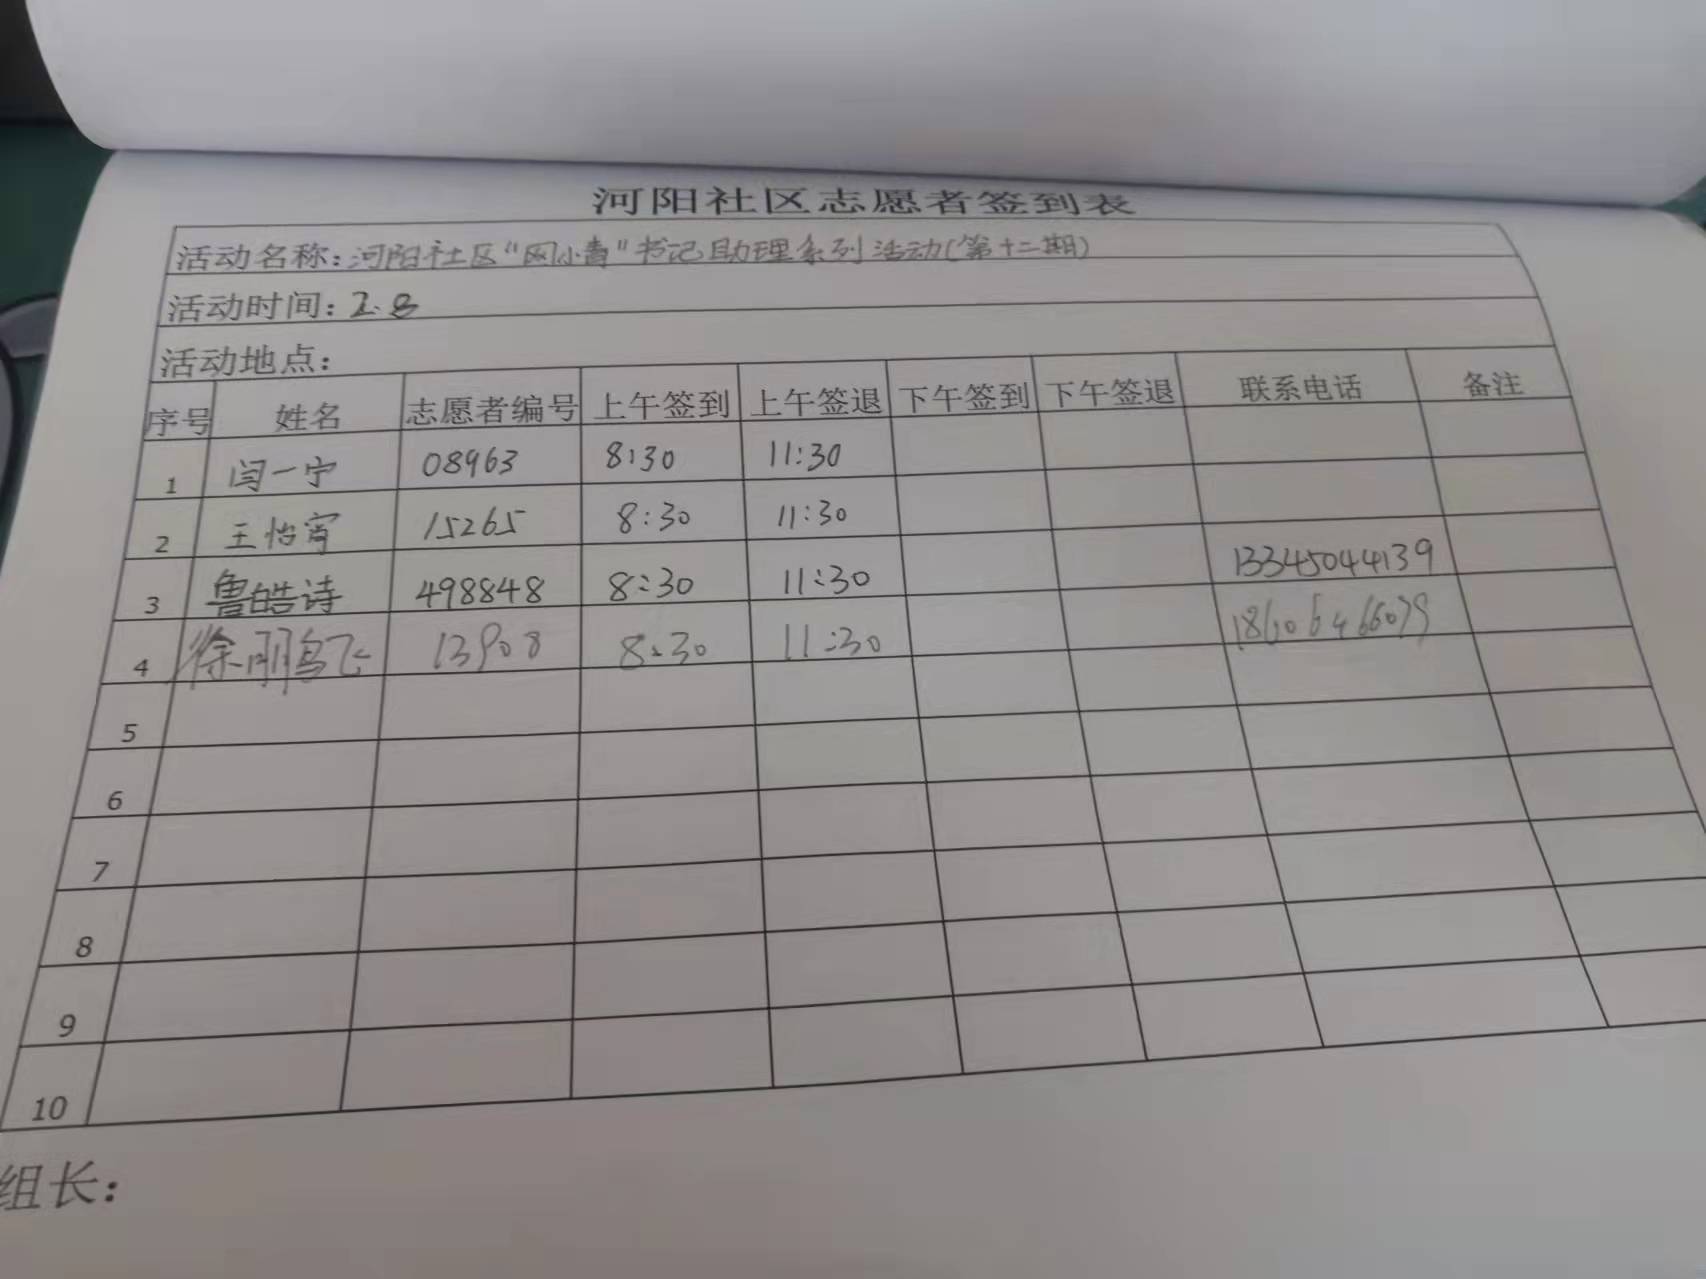 河阳社区志愿者签到表
活动名称:河阳社区"网小青"书记助理系列活动(第十二期)
活动时间:2.8
活动地点:
序号 姓名 志愿者编号 上午签到 上午签退 下午签到 下午签退 联系电话 备注
1 闫一宁 08963 8:30 11:30
2 王怡宵 15265 8:30 11:30
3 鲁皓诗 498848 8:30 11:30 13345044139
4 徐朋飞 13908 8:30 11:30
5
6
7
8
9
10
组长: